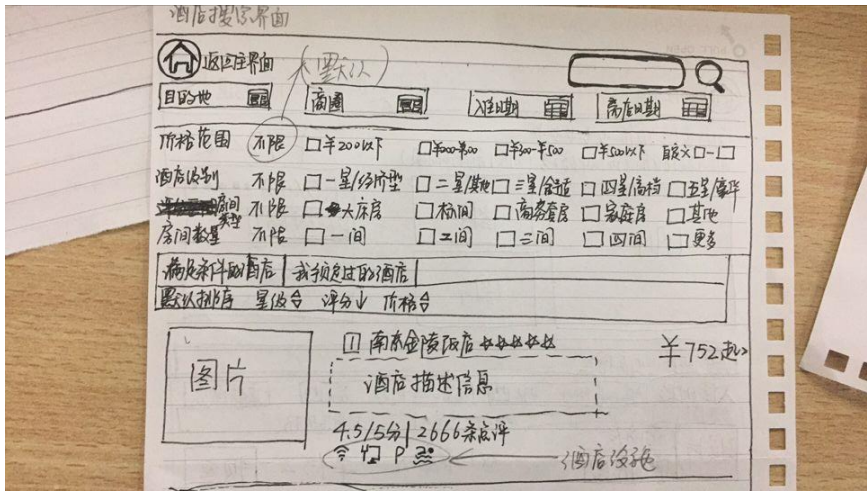 酒店搜索界面
返回主界面
(默认)
目的地 商圈 入住日期 离店日期
价格范围 不限 ¥200以下 ¥200-¥300 ¥300-¥500 ¥500以下 自定义 -
酒店级别 不限 一星/经济型 二星/其他 三星/舒适 四星/高档 五星/豪华
房间类型 不限 大床房 标间 商务套房 家庭房 其他
房间数量 不限 一间 二间 三间 四间 更多
满足条件的酒店 我预定过的酒店
默认排序 星级 评分↓ 价格
图片
1 南京金陵饭店
¥752起
酒店描述信息
4.5/5分|2666条点评
P
酒店设施